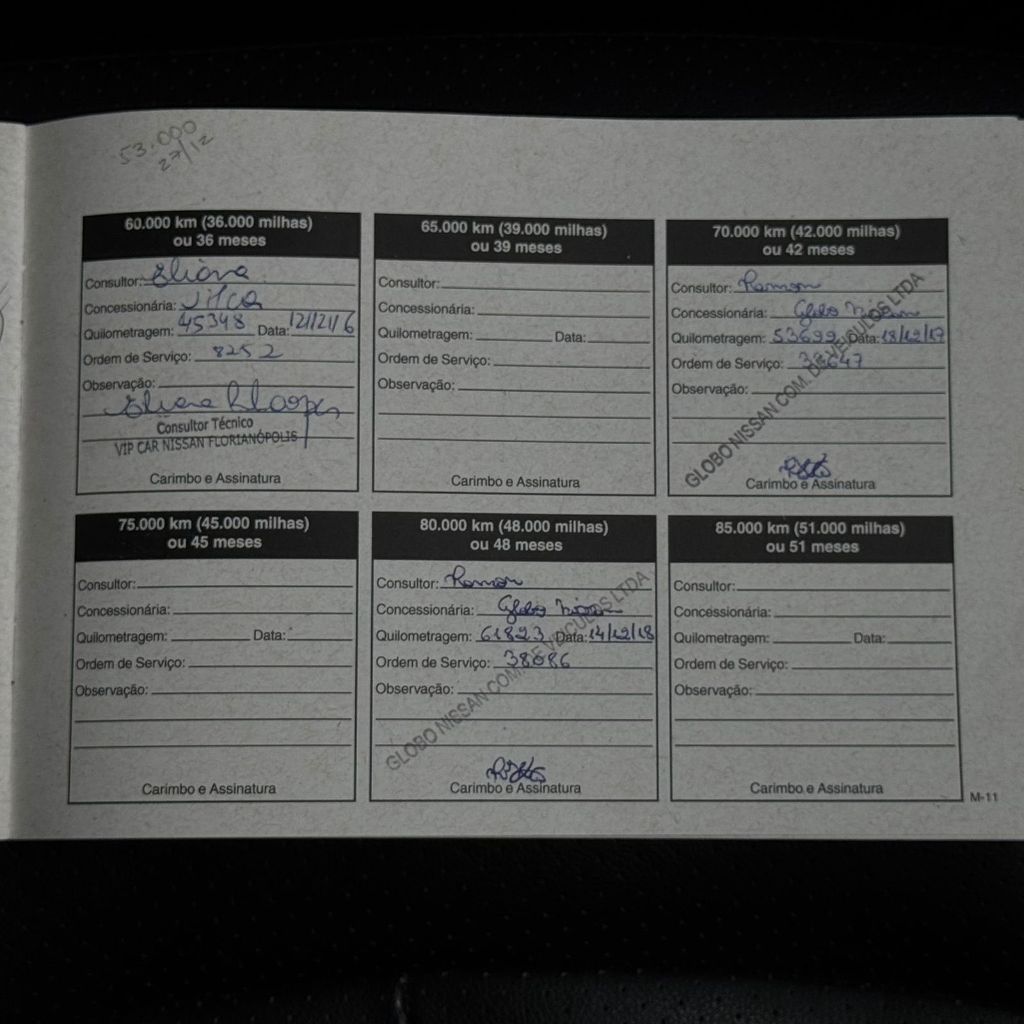 53.000
27/12
60.000 km (36.000 milhas)
ou 36 meses
Consultor: Eliana
Concessionária:
Quilometragem: 45348 Data: 12/12/16
Ordem de Serviço: 8252
Observação:
Consultor Técnico
VIP CAR NISSAN FLORIANÓPOLIS
Carimbo e Assinatura
65.000 km (39.000 milhas)
ou 39 meses
Consultor:
Concessionária:
Quilometragem: Data:
Ordem de Serviço:
Observação:
Carimbo e Assinatura
70.000 km (42.000 milhas)
ou 42 meses
Consultor: Ramon
Concessionária: Globo Nissan
Quilometragem: 53699 Data: 18/12/17
Ordem de Serviço:
Observação:
GLOBO NISSAN COM. DE VEICULOS LTDA
Carimbo e Assinatura
75.000 km (45.000 milhas)
ou 45 meses
Consultor:
Concessionária:
Quilometragem: Data:
Ordem de Serviço:
Observação:
Carimbo e Assinatura
80.000 km (48.000 milhas)
ou 48 meses
Consultor: Ramon
Concessionária: Globo Nissan
Quilometragem: 61823 Data: 14/12/18
Ordem de Serviço: 38086
Observação:
GLOBO NISSAN COM. DE VEICULOS LTDA
Carimbo e Assinatura
85.000 km (51.000 milhas)
ou 51 meses
Consultor:
Concessionária:
Quilometragem: Data:
Ordem de Serviço:
Observação:
Carimbo e Assinatura
M-11